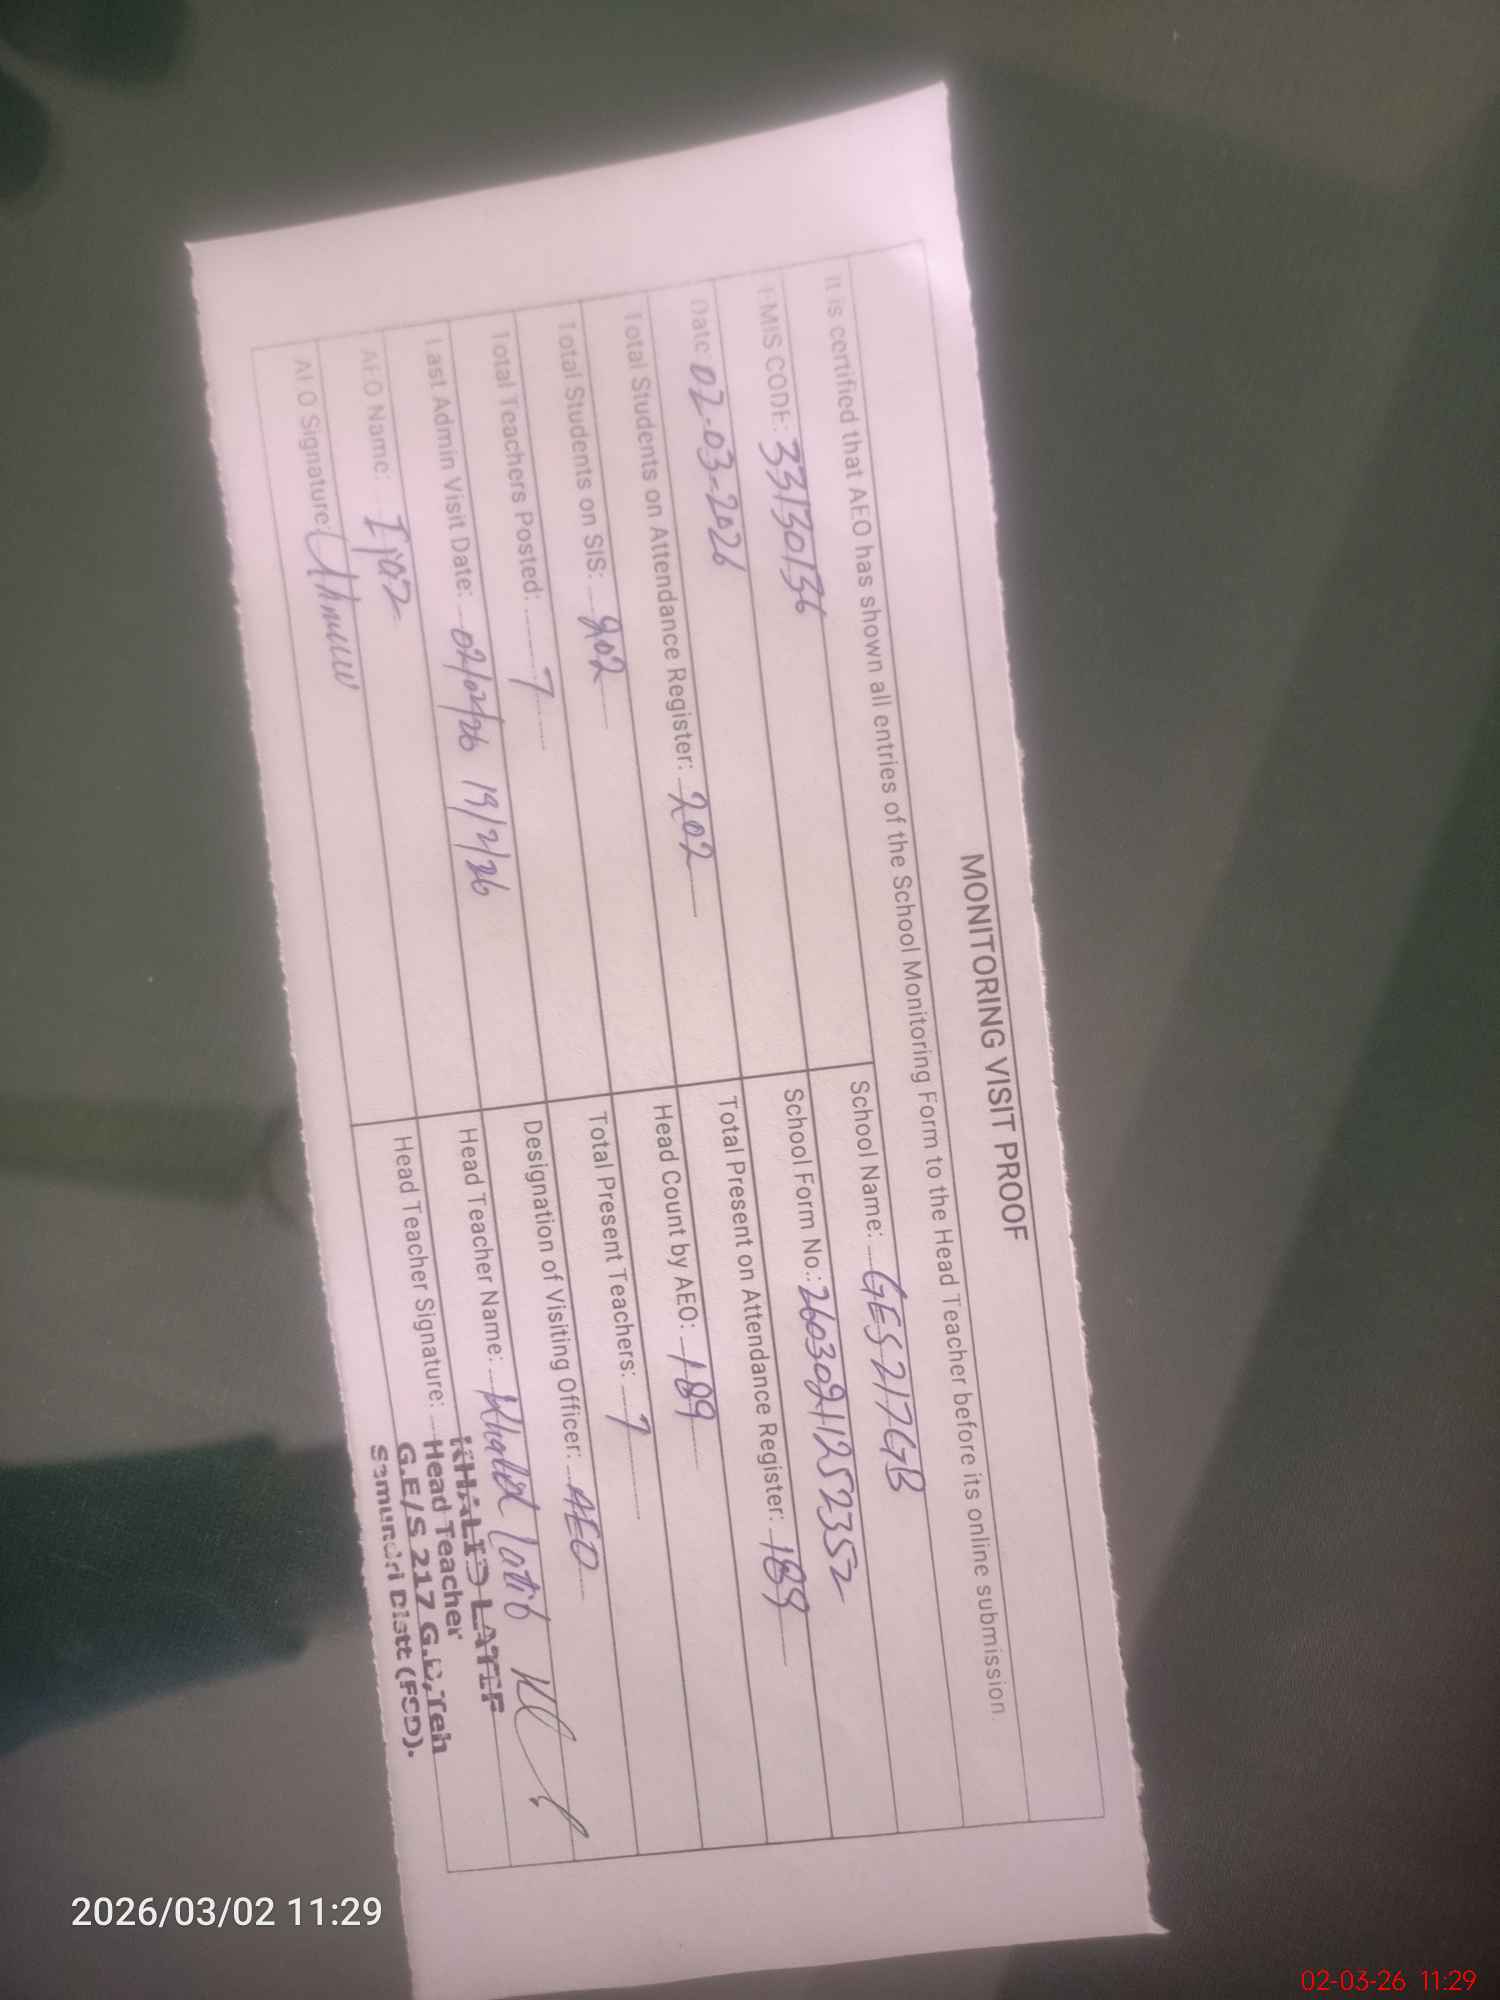 MONITORING VISIT PROOF
It is certified that AEO has shown all entries of the School Monitoring Form to the Head Teacher before its online submission.
EMIS CODE: 33130136
School Name: GES 217 GB
Date: 02-03-2026
School Form No.: 26030211252352
Total Students on Attendance Register: 202
Total Present on Attendance Register: 189
Total Students on SIS: 202
Head Count by AEO: 189
Total Teachers Posted: 7
Total Present Teachers: 7
Last Admin Visit Date: 02/02/26 19/2/26
Designation of Visiting Officer: AEO
AEO Name: Ijaz
Head Teacher Name: Khalid Latif
AEO Signature:
Head Teacher Signature:
KHALID LATIF
Head Teacher
G.E/S 217 G.B, Teh
Samundri Distt (FSD).
2026/03/02 11:29
02-03-26 11:29